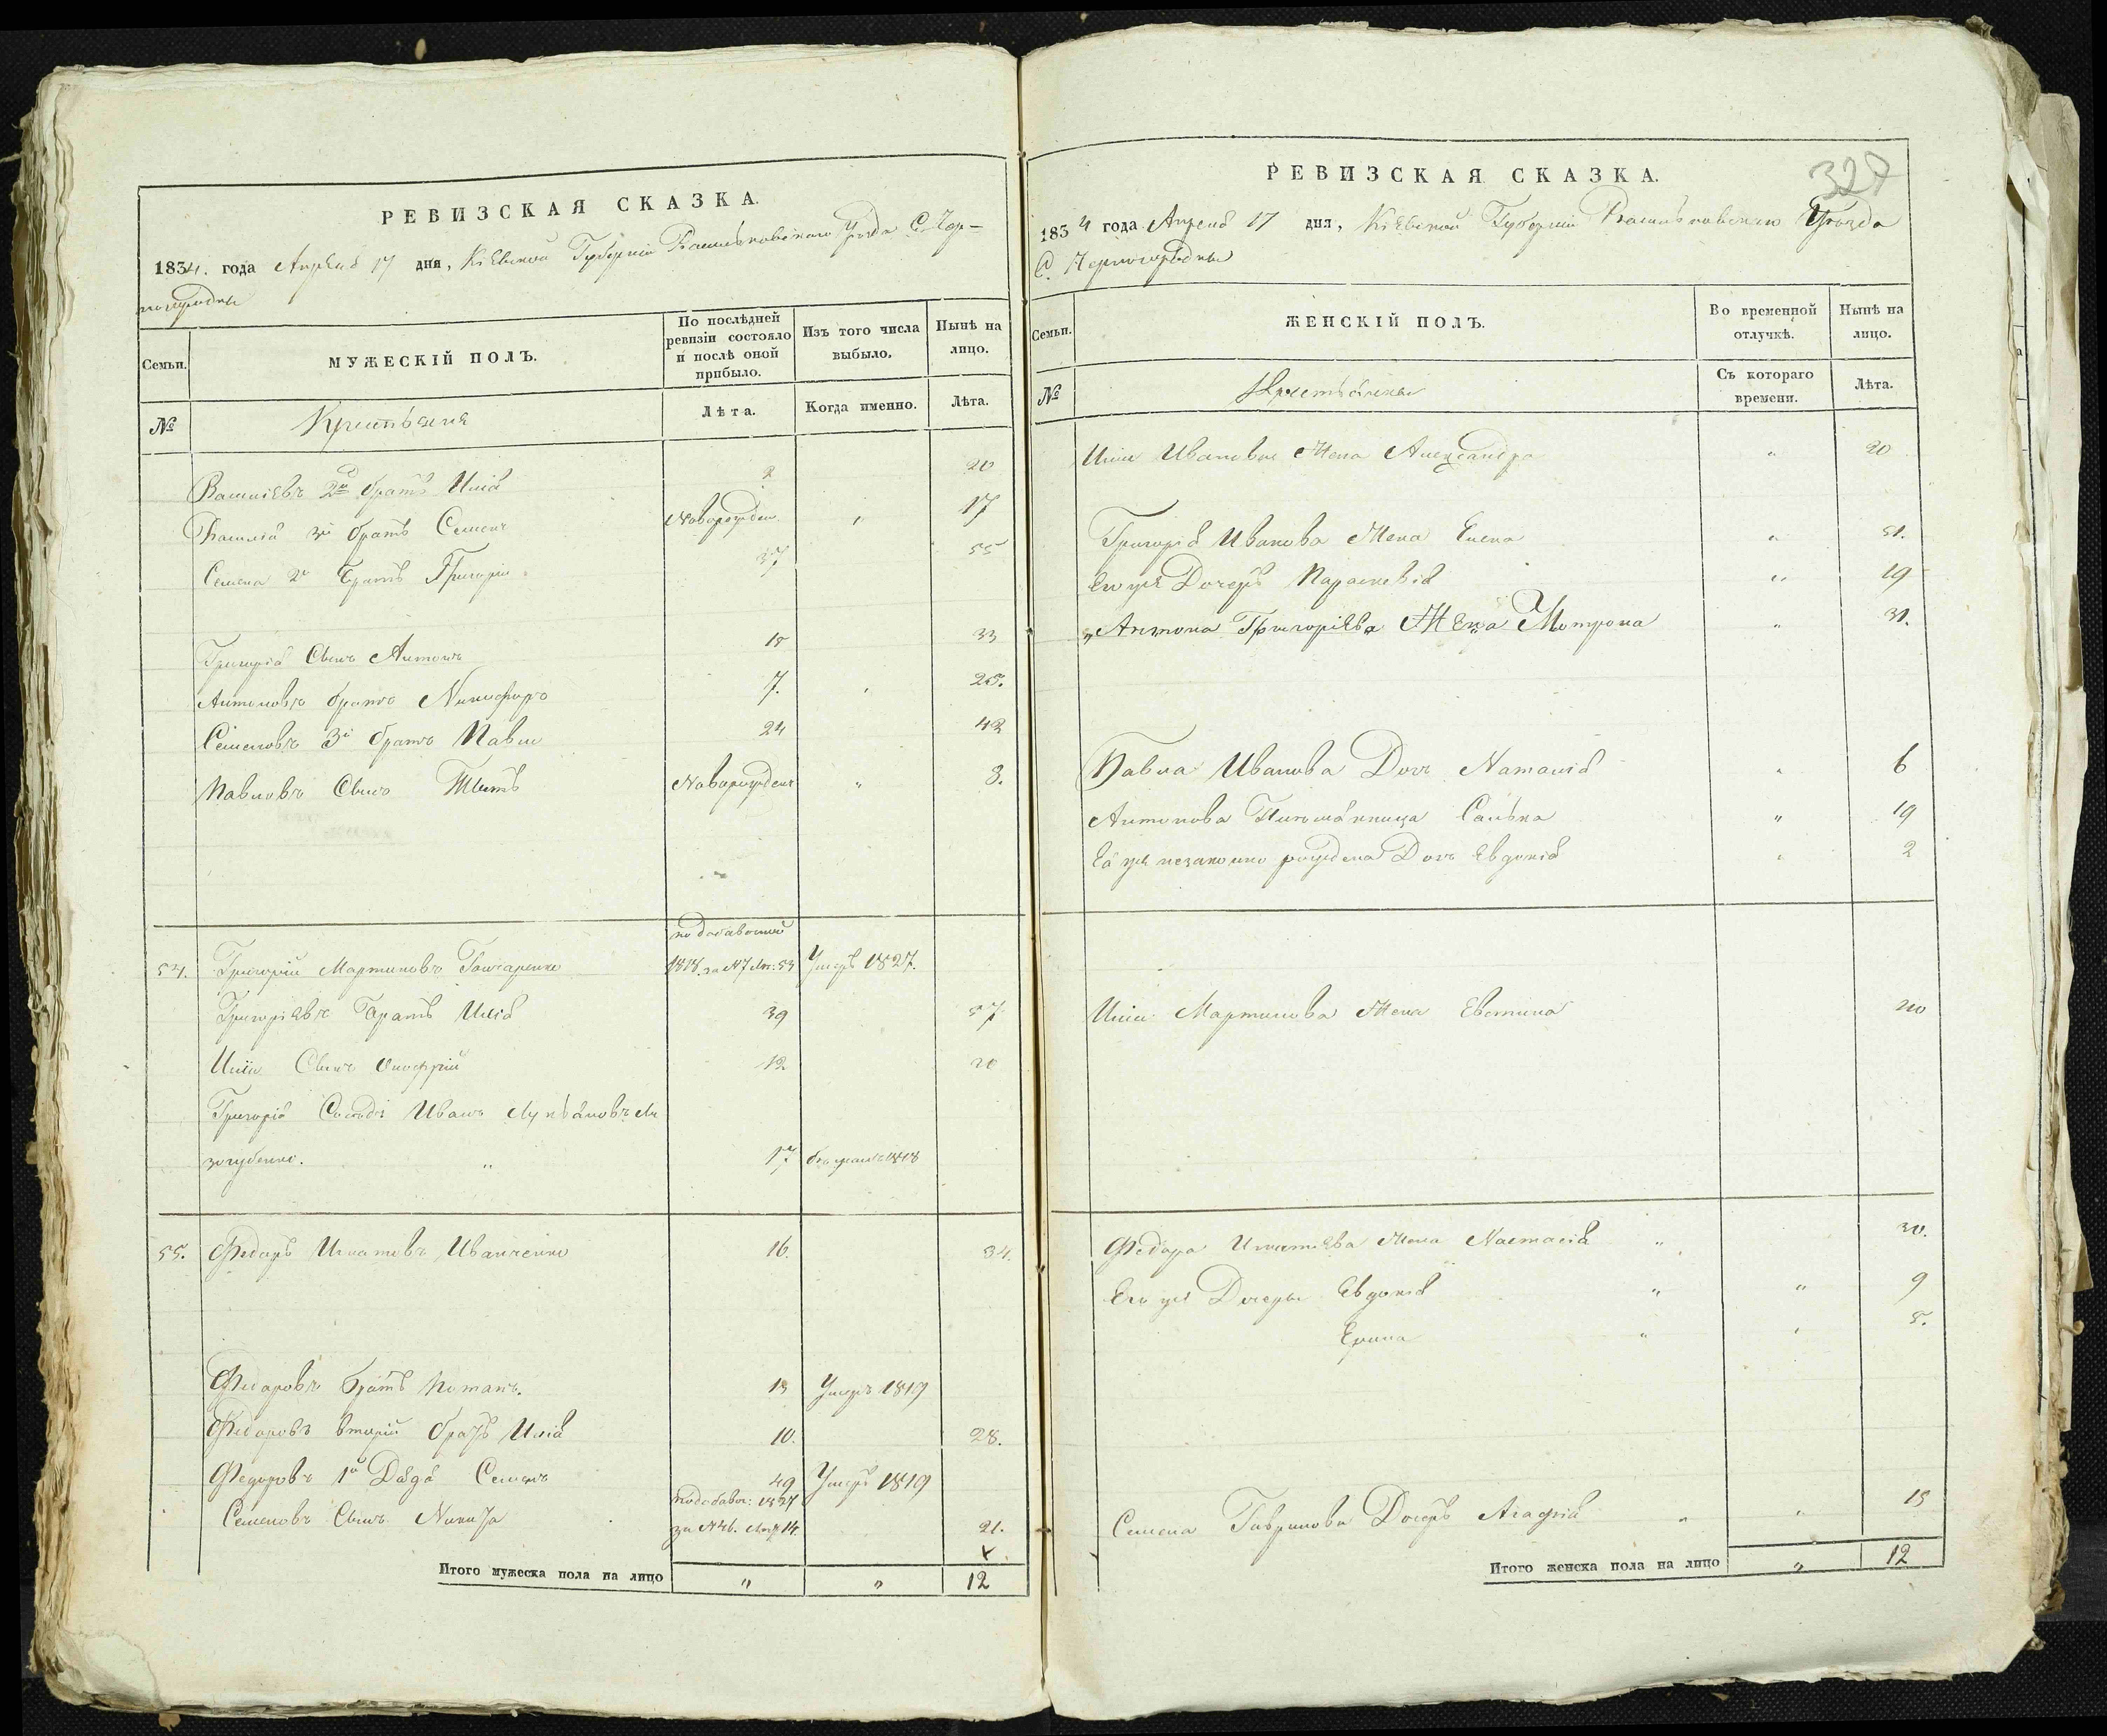 РЕВИЗСКАЯ СКАЗКА.
1834. года Апреля 17 дня, Кіевской Губерніи Васильковскаго Уезда С. Чер-
ногородки
Семьи.
МУЖЕСКІЙ ПОЛЪ.
По послѣдней ревизіи состояло и послѣ оной прибыло.
Изъ того числа выбыло.
Нынѣ на лицо.
№
Крестьяне
Лѣта.
Когда именно.
Лѣта.
Василіевъ 2й братъ Илія 2 20
Василія 3й братъ Семенъ Новорожден. " 17
Семена 2й братъ Григорій 37 55
Григорія Сынъ Антонъ 15 33
Антоновъ братъ Никифоръ 7. 25.
Семеновъ 3й братъ Павелъ 24 42
Павловъ Сынъ Титъ Новорожденъ " 8.
54. Григорій Мартиновъ Гончаренко по добавочной 1818. за №7 Лѣт: 53 Умеръ 1827.
Григоріевъ братъ Илія 39 57
Иліи Сынъ Онофрій 12 20
Григорія Иванъ
17 1818
55. Федоръ Игнатовъ Иванченко 16. 34.
Федоровъ братъ Потапъ. 13 Умеръ 1819
Федоровъ вторій братъ Илія 10. 28.
Федоровъ 1й Дядя Семенъ 49 Умеръ 1819
Семеновъ Сынъ Никита по добавоч: 1827 за №46. Лѣтъ 14. 21.
Итого мужеска пола на лицо " " 12
РЕВИЗСКАЯ СКАЗКА.
327
1834 года Апреля 17 дня, Кіевской Губерніи Васильковскаго Уѣзда
С. Черногородки
Семьи.
ЖЕНСКІЙ ПОЛЪ.
Во временной отлучкѣ.
Нынѣ на лицо.
№
Крестьянки
Съ котораго времени.
Лѣта.
Иліи Иванова Жена Александра " 20
Григорія Иванова Жена Елена " 51.
Его же Дочерь Параскевія " 19
Антона Григоріева Жена Мотрона " 31.
Павла Иванова Дочь Наталія " 6
Антонова Племянница " 19
Ея же незаконно рождена Дочь Евдокія " 2
Иліи Мартинова Жена 40
Федора Игнатіева Жена Настасія " 30.
Его же Дочеры Евдокія " " 9
Ерина " " 5.
Семена Гаврилова Дочерь Агафія " " 15
Итого женска пола на лицо " 12